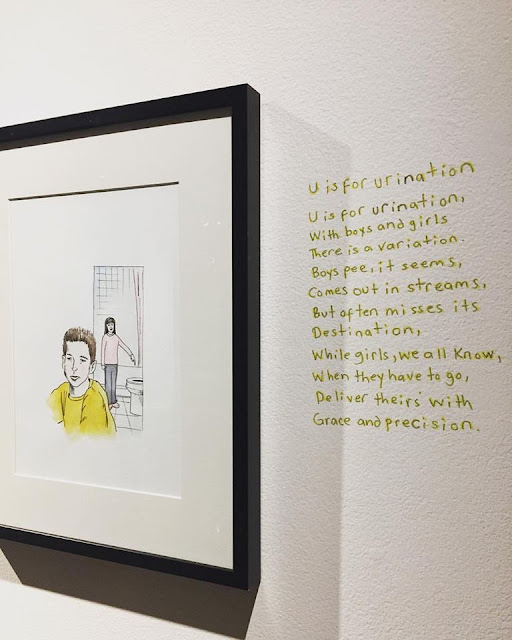 U is for urination
U is for urination,
With boys and girls
There is a variation.
Boys pee, it seems,
Comes out in streams,
But often misses its
Destination,
While girls, we all know,
When they have to go,
Deliver theirs with
Grace and precision.